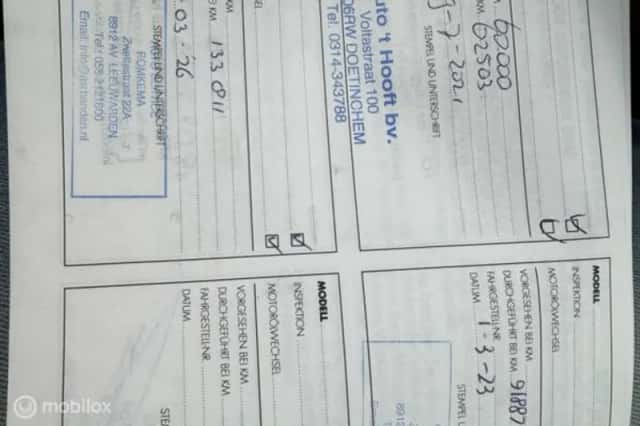 60000
62503
9-7-2021
STEMPEL UND UNTERSCHRIFT
uto 't Hooft bv.
Voltastraat 100
06RW DOETINCHEM
Tel. 0314-343788
MODELL
INSPEKTION
MOTORÖLWECHSEL
VORGESEHEN BEI KM
DURCHGEFÜHRT BEI KM 91887
FAHRGESTELL-NR.
DATUM 1-3-23
STEMPEL U
8912
KM
BEI KM 133 011
03-'26
STEMPEL UND UNTERSCHRIFT
ROMKEMA
Zwettestraat 22A
8912 AV LEEUWARDEN
MODELL
INSPEKTION
MOTORÖLWECHSEL
VORGESEHEN BEI KM
DURCHGEFÜHRT BEI KM
FAHRGESTELL-NR.
DATUM
STE
mobilox